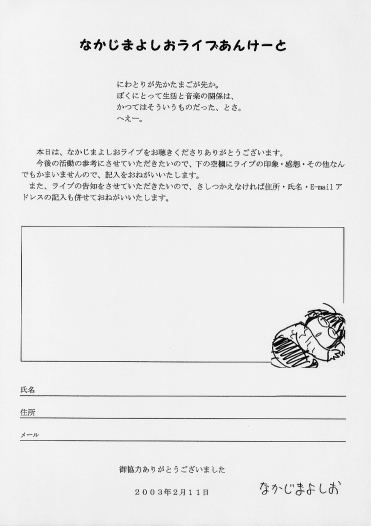 なかじまよしおライブあんけーと
にわとりが先かたまごが先か。
ぼくにとって生活と音楽の関係は、
かつてはそういうものだった、とさ。
へえー。
本日は、なかじまよしおライブをお聴きくださりありがとうございます。
今後の活動の参考にさせていただきたいので、下の空欄にライブの印象・感想・その他なん
でもかまいませんので、記入をおねがいいたします。
また、ライブの告知をさせていただきたいので、さしつかえなければ住所・氏名・E-mailア
ドレスの記入も併せておねがいいたします。
氏名
住所
メール
御協力ありがとうございました
2003年2月11日
なかじまよしお